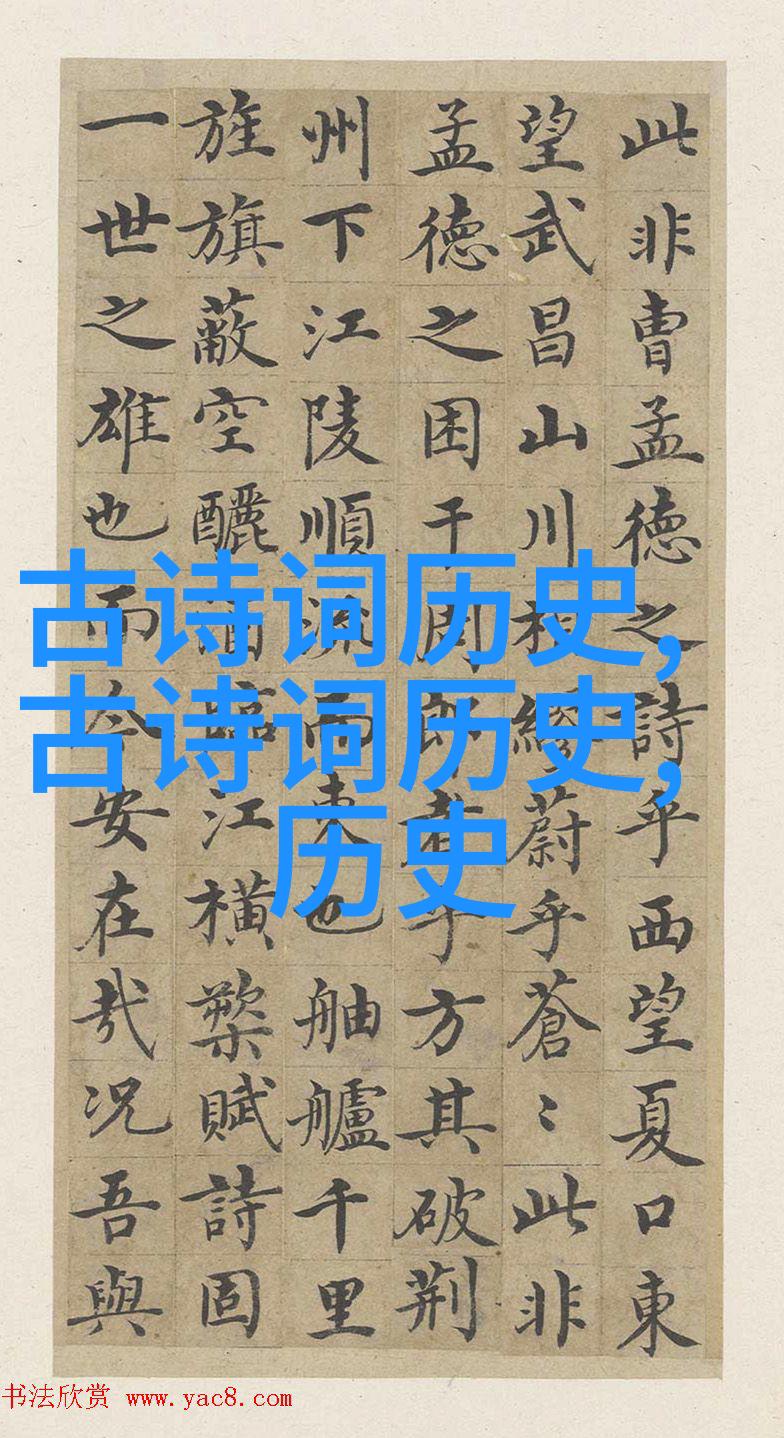 此非曹孟德之詩乎西望夏口東
望武昌山川相繆蔚乎蒼〻此非
孟德之困于周郎者乎方其破荆
州下江陵順流而東也舳艫千里
旌旗蔽空釃酒臨江横槊賦詩固
一世之雄也而今安在哉况吾與
古诗词历史,
古诗词历史,
历史
书法欣赏 www.yac8.com